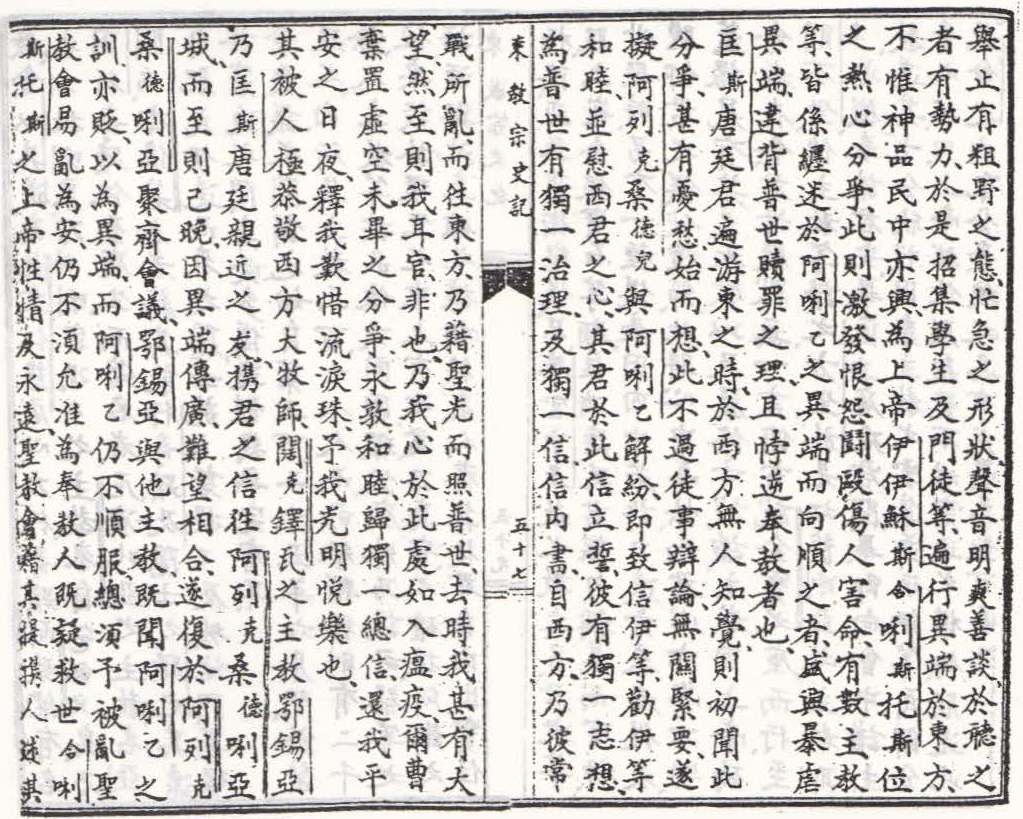 舉止有粗野之態、忙急之形狀、聲音明爽善談、於聽之
者有勢力、於是招集學生及門徒等、遍行異端於東方、
不惟神品民中亦興、為上帝伊伊穌斯合唎斯托斯位
之熱心分爭、此則激發恨怨鬪毆傷人害命有數主教
等、皆係纏迷於阿唎乙之異端而向順之者、盛興暴虐
異端、違背普世贖罪之理、且悖逆奉教者也、
匡斯唐廷君遍游東之時、於西方無人知覺、則初聞此
分爭、甚有憂愁、始而想、此不過徒事辯論、無關緊要、遂
擬阿列克桑德兒與阿唎乙解紛、即致信伊等勸伊等
和睦、並慰西君之心、其君於此信立誓、彼有獨一志想、
為普世有獨一治理、及獨一信、信內書、自西方、乃彼常
東教宗史記 五十七
戰所亂、而往東方、乃藉聖光而照普世、去時我甚有大
望、然至則我耳官、非也、乃我心於此處如入瘟疫、爾曹
棄置虛空未畢之分爭、永敦和睦、歸獨一總信、還我平
安之日夜、釋我歎惜流淚珠、予我光明悅樂也、
其被人極恭敬西方大牧師、闊克鐸瓦之主教鄂錫亞
乃匡斯唐廷親近之友、攜君之信往阿列克桑德唎亞
城、而至則已晚、因異端傳廣、難望相合、遂復於阿列克
桑德唎亞聚齊會議、鄂錫亞與他主教既聞阿唎乙之
訓、亦貶、以為異端、而阿唎乙仍不順服、總須予被亂聖
教會易亂為安、仍不須允准為奉教人既疑救世合唎
斯托斯之上帝性情及永遠、聖教會藉其提攜人